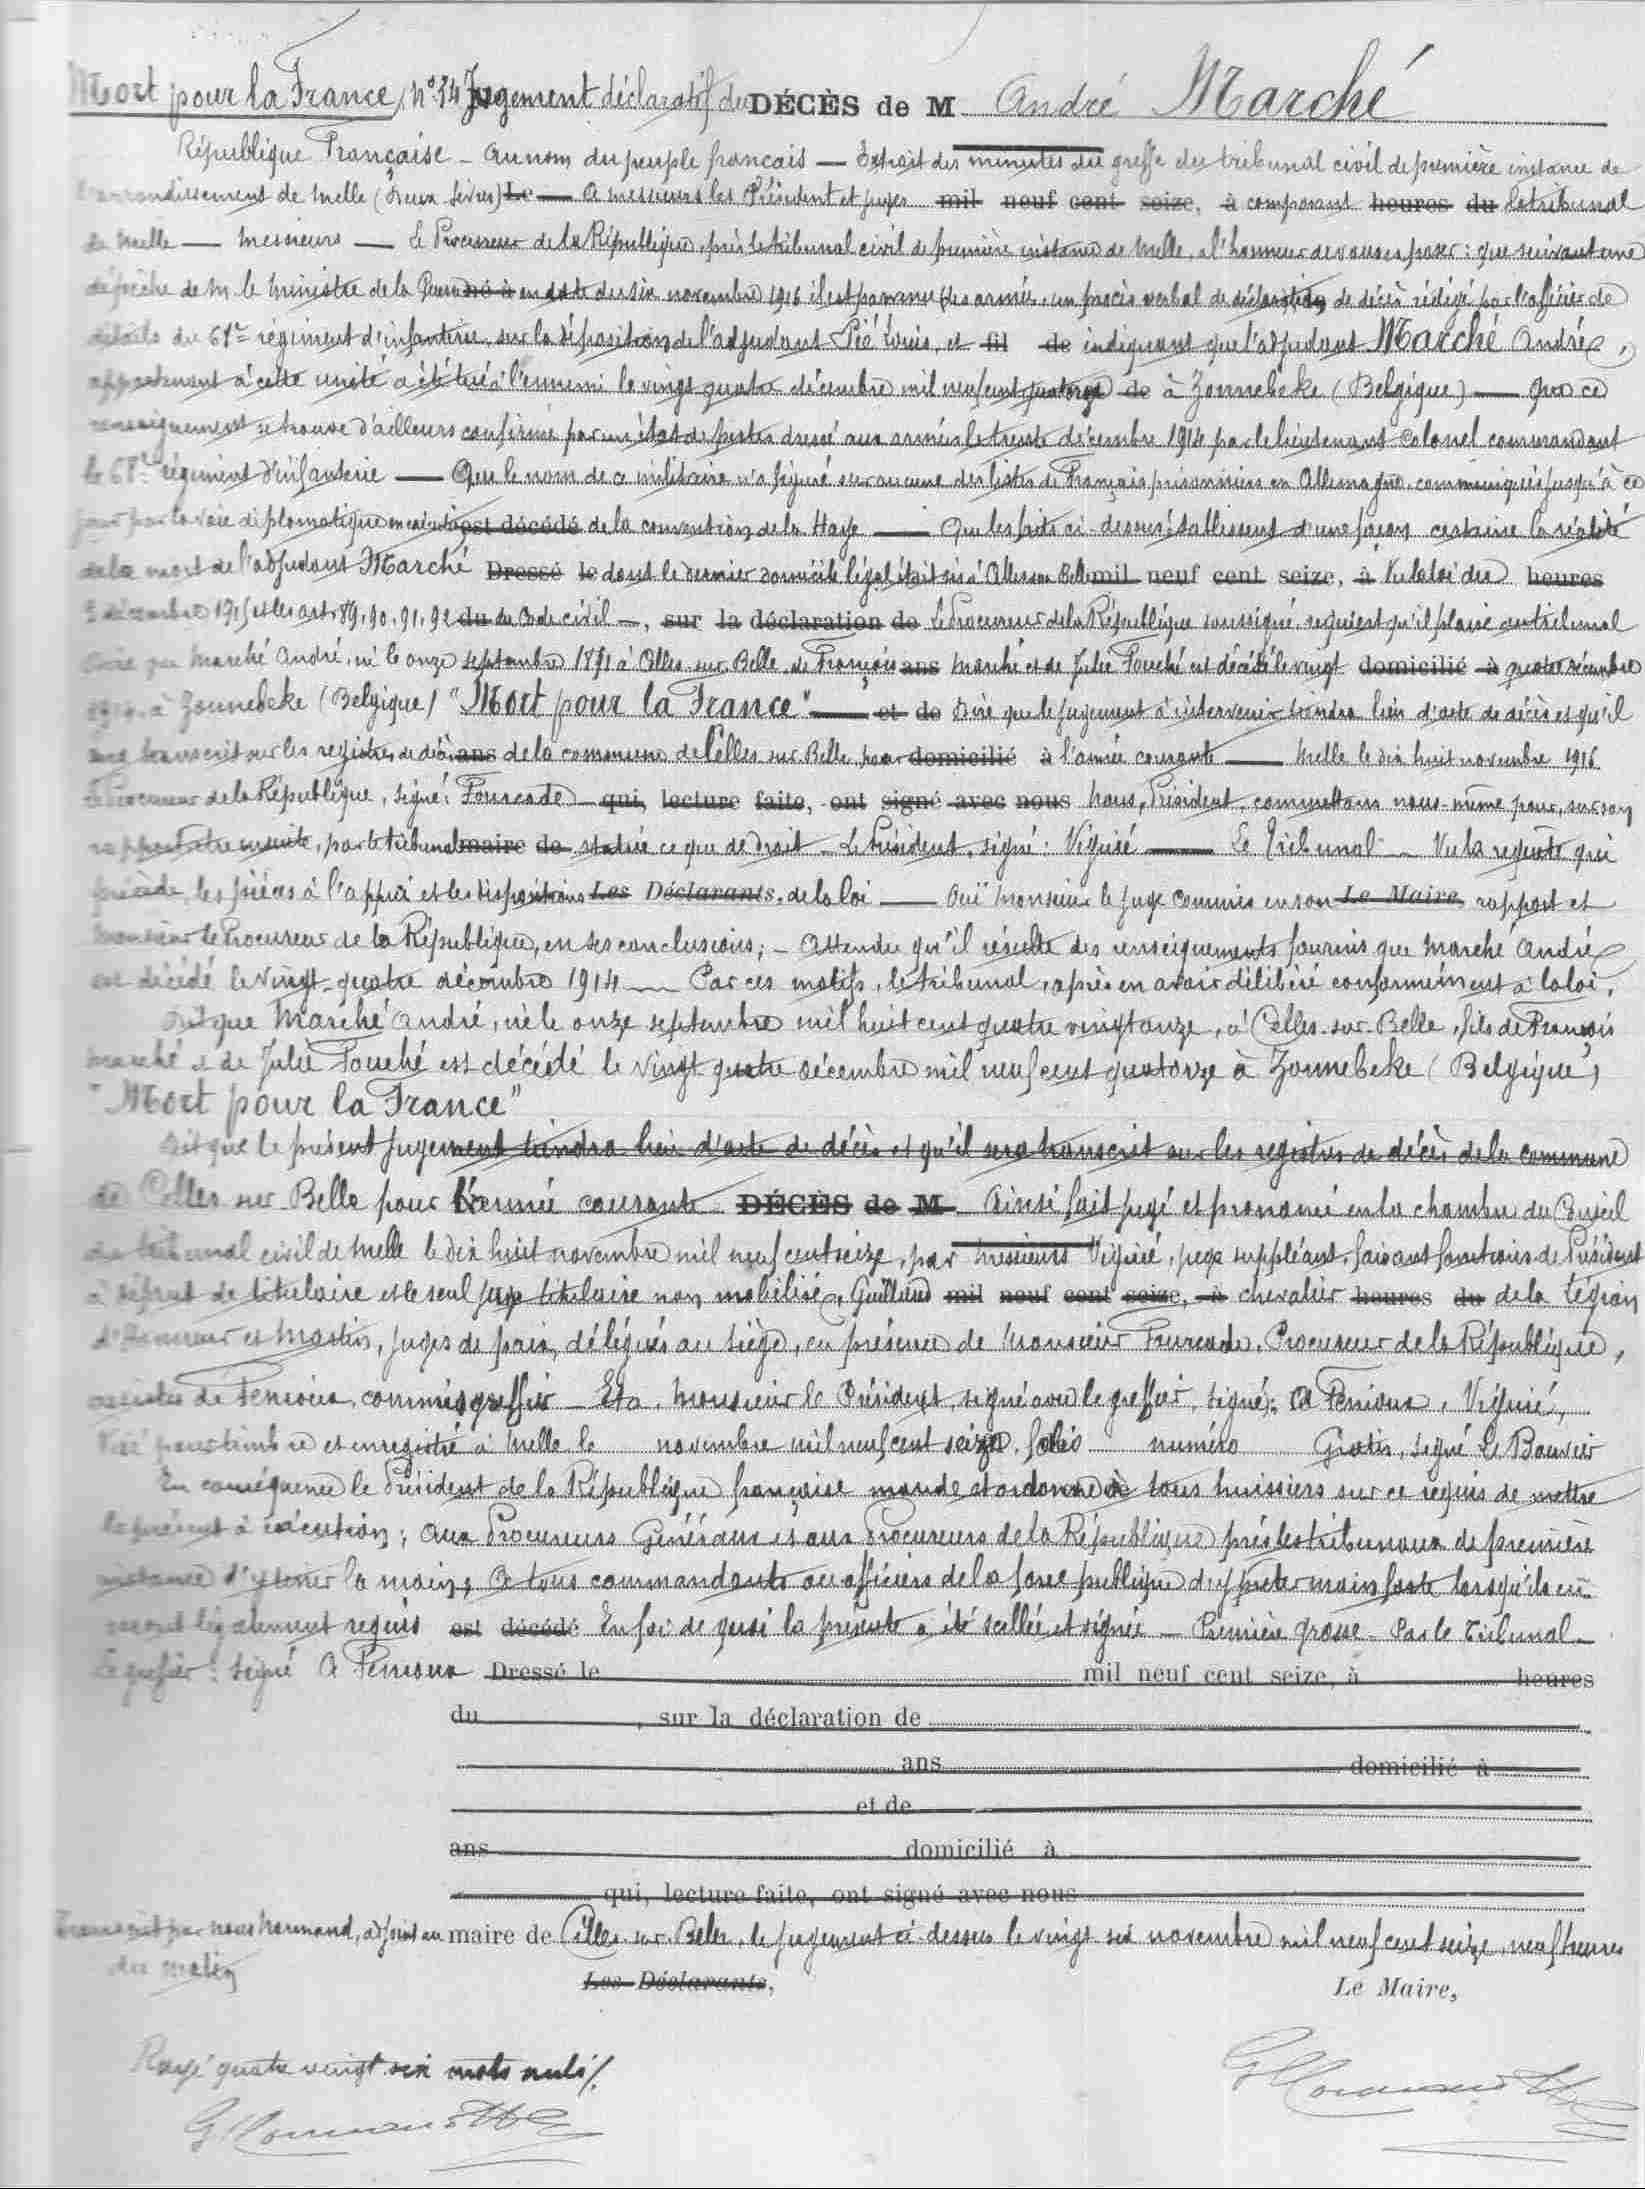 Mort pour la France, N° 34 Jugement déclaratif du DÉCÈS de M André Marché
République Française - Au nom du peuple français — Extrait des minutes du greffe du tribunal civil de première instance de
l'arrondissement de Melle (Deux Sèvres) Le — A messieurs les Président et juges mil neuf cent seize, à composant heures du le tribunal
de Melle — Messieurs — Le Procureur de la République, près le tribunal civil de première instance de Melle, a l'honneur de vous exposer : que suivant une
dépêche de M. le Ministre de la Guerre né à en date du six novembre 1916 il est parvenu des armées, un procès verbal de déclaration de décès rédigé par l'officier de
détails du 68e régiment d'infanterie, sur la déposition de l'adjudant Pié Louis, et fil de indiquant que l'adjudant Marché André,
appartenant à cette unité a été tué à l'ennemi le vingt quatre décembre mil neuf cent quatorze de à Zonnebeke (Belgique) — Que ce
renseignement se trouve d'ailleurs confirmé par un état de pertes dressé aux armées le trente décembre 1914 par le lieutenant Colonel commandant
le 68e régiment d'infanterie — Que le nom de ce militaire n'a figuré sur aucune des listes de Français prisonniers en Allemagne, communiquées jusqu'à ce
jour par la voie diplomatique en exécution est décédé de la convention de la Haye — Que les faits ci-dessus établissent d'une façon certaine la réalité
de la mort de l'adjudant Marché Dressé le dont le dernier domicile légal était sis à Celles sur Belle mil neuf cent seize, à Vu la loi du heures
3 décembre 1915 et les art. 89, 90, 91, 92 du du Code civil —, sur la déclaration de Le Procureur de la République soussigné, requiert qu'il plaise au tribunal
dire que Marché André, né le onze septembre 1891 à Celles-sur-Belle, de François ans Marché et de Julie Fouché est décédé le vingt domicilié à quatre décembre
1914, à Zonnebeke (Belgique) "Mort pour la France" — et de Dire que le jugement à intervenir tiendra lieu d'acte de décès et qu'il
sera transcrit sur les registres de décès ans de la commune de Celles sur Belle, pour domicilié à l'année courante — Melle le dix huit novembre 1916
Le Procureur de la République, signé : Fourcade - qui, lecture faite, ont signé avec nous Nous, Président, commettons nous-même pour, sur son
rapport être ensuite, par le tribunal maire de statué ce que de droit - Le Président, signé : Viguié — Le Tribunal - Vu la requête qui
précède, les pièces à l'appui et les dispositions Les Déclarants, de la loi — Ouï Monsieur le juge commis en son Le Maire, rapport et
Monsieur le Procureur de la République, en ses conclusions ; - Attendu qu'il résulte des renseignements fournis que Marché André
est décédé le vingt-quatre décembre 1914 — Par ces motifs, le tribunal, après en avoir délibéré conformément à la loi,
Dit que Marché André, né le onze septembre mil huit cent quatre vingt onze, à Celles-sur-Belle, fils de François
Marché et de Julie Fouché est décédé le vingt quatre décembre mil neuf cent quatorze à Zonnebeke (Belgique)
"Mort pour la France"
Dit que le présent jugement tiendra lieu d'acte de décès et qu'il sera transcrit sur les registres de décès de la commune
de Celles sur Belle pour l'année courante - DÉCÈS de M Ainsi fait jugé et prononcé en la chambre du Conseil
du tribunal civil de Melle le dix huit novembre mil neuf cent seize, par Messieurs Viguié, juge suppléant, faisant fonctions de Président
à défaut de titulaire et le seul juge titulaire non mobilisé, mil neuf cent seize, à chevalier heures du de la Légion
d'Honneur et Martin, juges de paix, délégués au siège, en présence de Monsieur Fourcade, Procureur de la République,
assistés de Penioux, commis greffier - Et a, Monsieur le Président, signé avec le greffier, signé : A Penioux, Viguié,
Visé pour timbre et enregistré à Melle le novembre mil neuf cent seize, folio numéro Gratis, signé Le Bouvier
En conséquence le Président de la République française mande et ordonne à tous huissiers sur ce requis de mettre
le présent à exécution ; aux Procureurs Généraux et aux Procureurs de la République près les tribunaux de première
instance d'y tenir la main, A tous commandants ou officiers de la force publique d'y prêter main forte lorsqu'ils en
seront légalement requis est décédé En foi de quoi la présente a été scellée et signée - Première grosse - Par le Tribunal -
Le greffier : signé A Penioux Dressé le mil neuf cent seize, à heures
du , sur la déclaration de
ans domicilié à
et de
ans domicilié à
qui, lecture faite, ont signé avec nous
Transcrit par nous Normand, adjoint au maire de Celles-sur-Belle, le jugement ci-dessus le vingt six novembre mil neuf cent seize, neuf heures
du matin
Les Déclarants, Le Maire,
Rayé quatre vingt six mots nuls /.